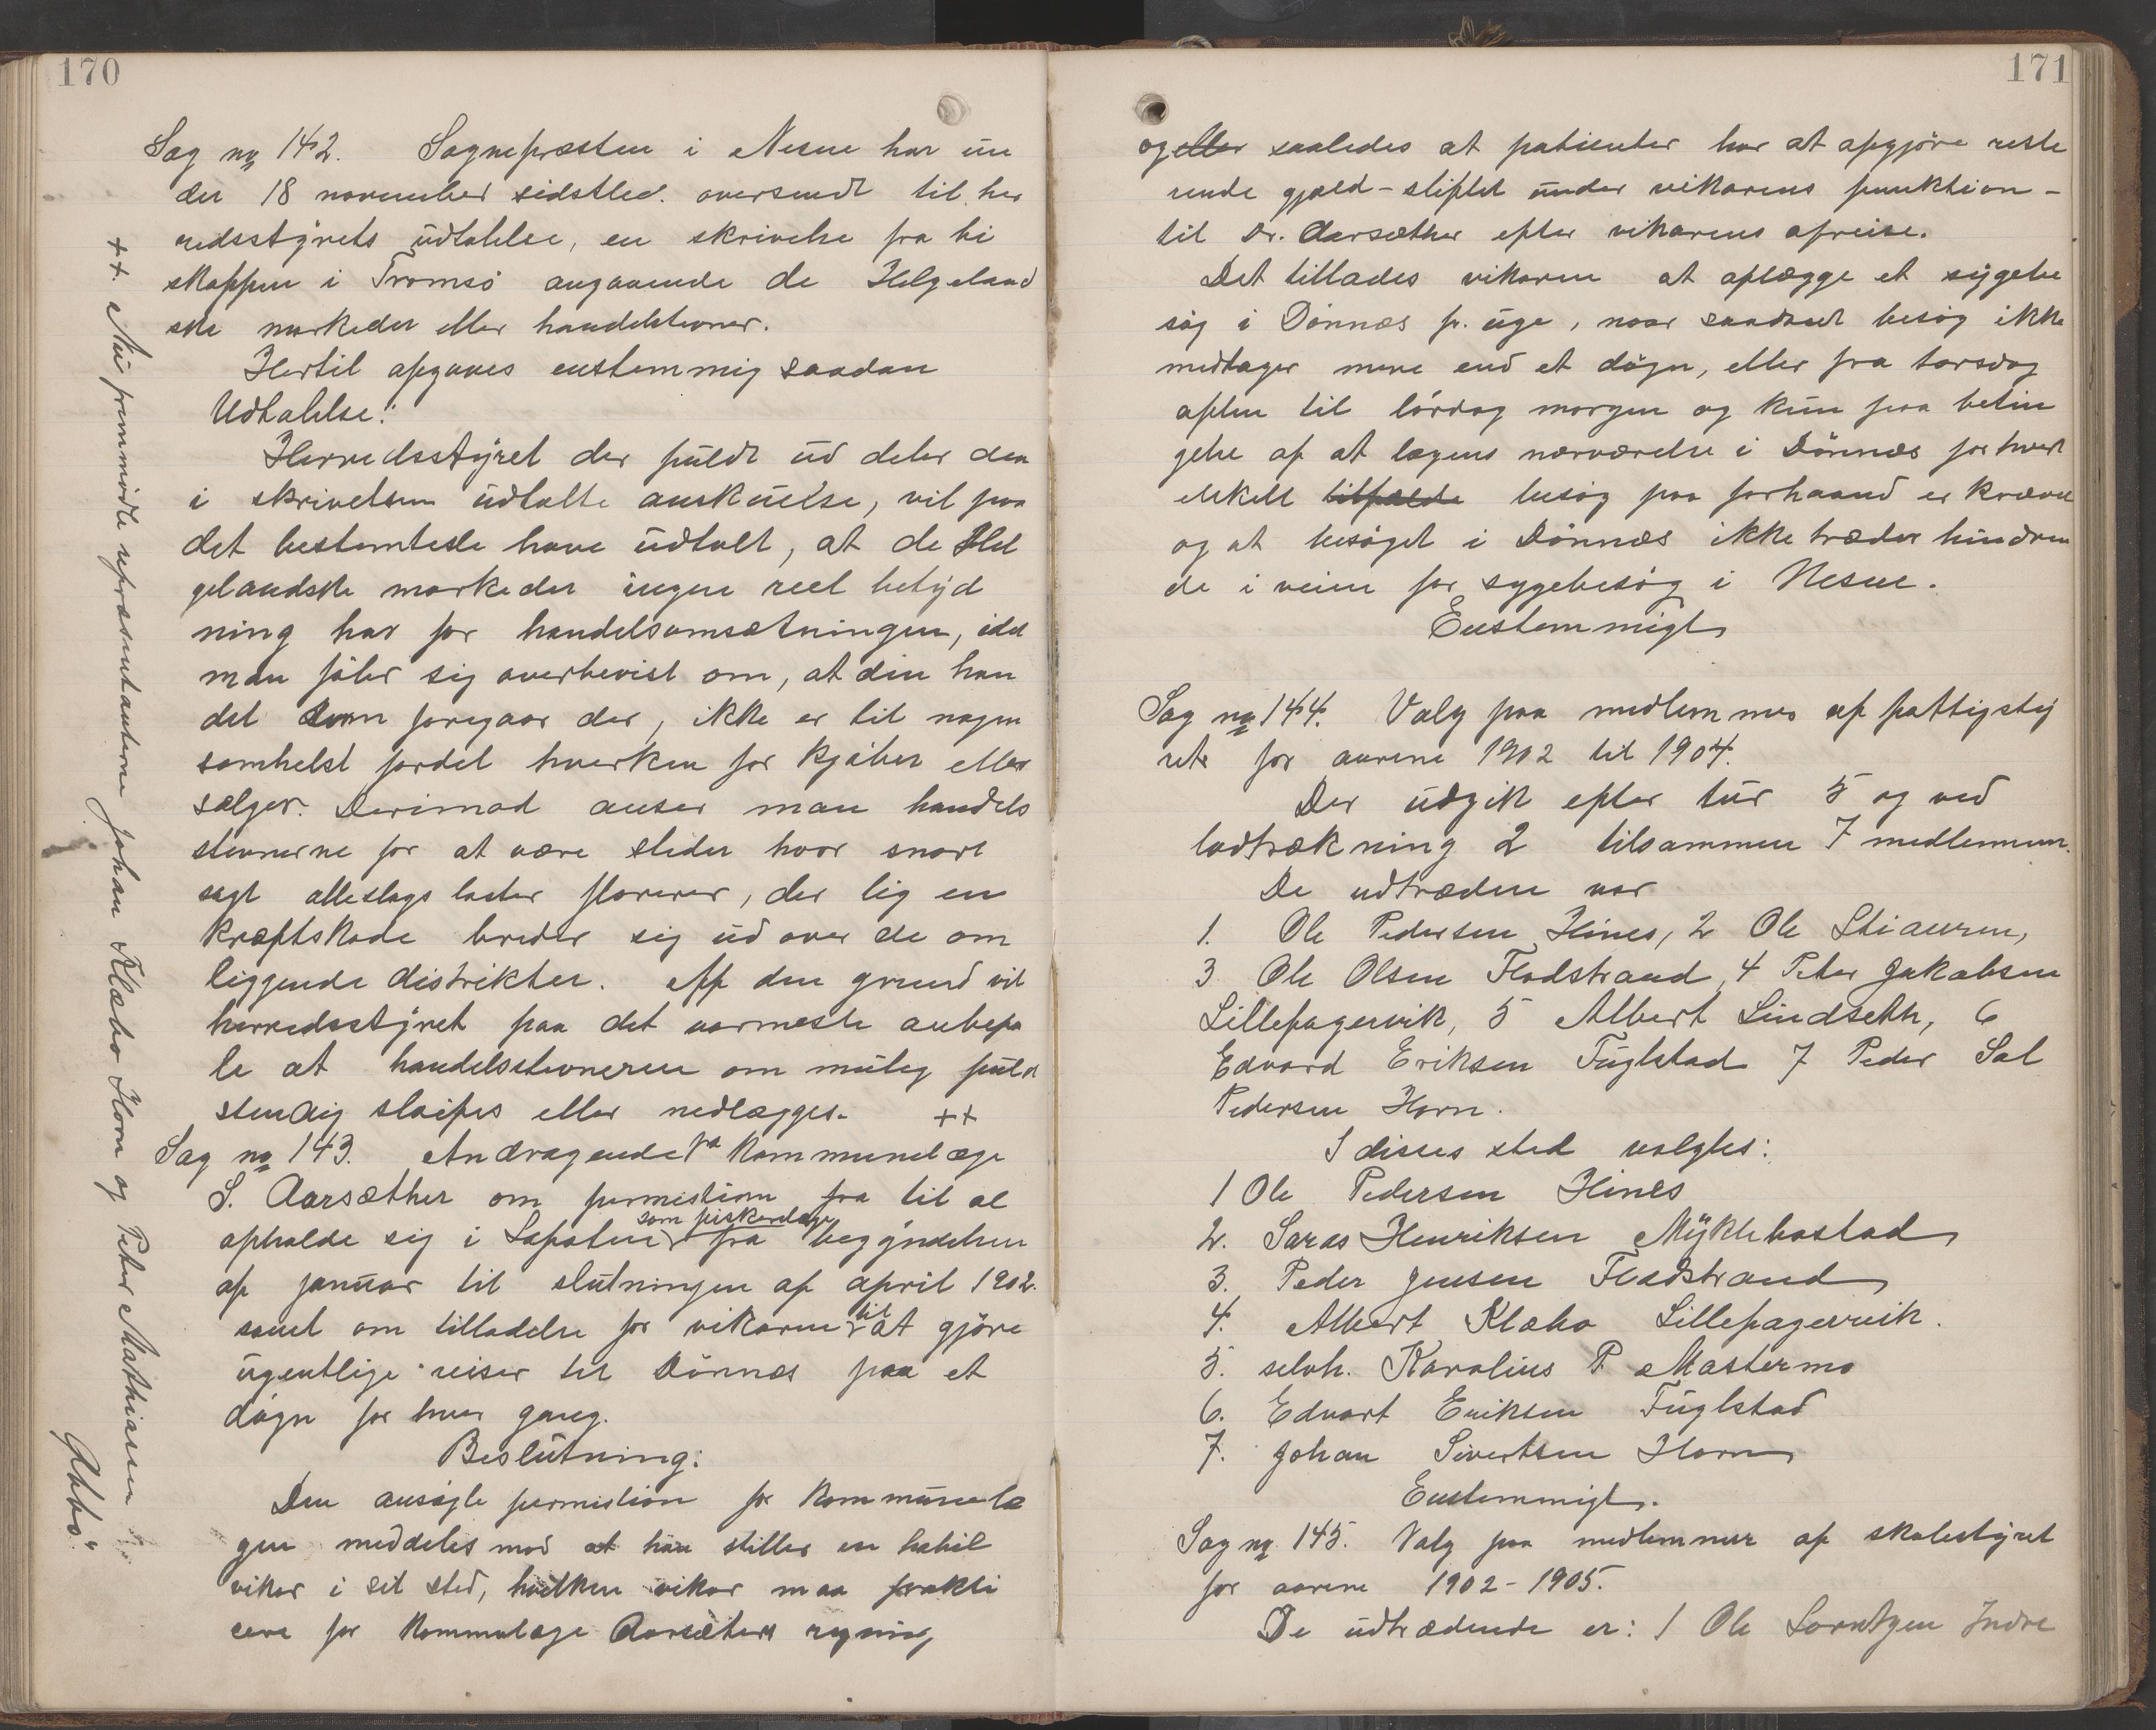 170
Sag no 142. Sognepræsten i Nesne har un
der 18 november sidstled. oversendt til her
redsstyrets udtalelse, en skrivelse fra bi
skoppen i Tromsö angaaende de Helgeland
ske markeder eller handelstevner.
Hertil afgaves enstemmig saadan
Udtalelse:
Herredsstyret der fuldt ud deler den
i skrivelsen udtalte anskuelse, vil paa
det bestemteste have udtalt, at de Hel
gelandske markeder ingen reel betyd
ning har for handelsomsætningen, idet
man föler sig overbevist om, at den han
del som foregaar der, ikke er til nogen
somhelst fordel hverken for kjöber eller
sælger. Derimod anser man handels
stevnerne for at være steder hvor snart
sagt alleslags laster florerer, der lig en
kræftskade breder sig ud over de om
liggende distrikter. Af den grund vil
herredsstyret paa det varmeste anbefa
le at handelsstevnerne om mulig fuld
stendig sløifes eller nedlægges. ++
Sag no 143. Andragende fra Kommunelæge
S. Aarsæther om permistion fra til at
opholde sig i Lofoten som fiskerlæge fra begyndelsen
af januar til slutningen af april 1902.
samt om tilladelse for vikaren til at gjöre
ugentlige reiser til Dönnes paa et
dögn for hver gang.
Beslutning:
Den ansögte permistion for kommunelæ
gen meddeles mod at han stiller en habil
vikar i sit sted, hvilken vikar maa prakti
sere for Kommulæge Aarsæthers regning
++. Nu fremmödte repræsentanterne Johan Klæbo Horn og Peter Mathiassen
Åbbo.
171
og eller saaledes at patienter har at afgjöre reste
rende gjæld - stiftet under vikarens funktion -
til Dr. Aarsæther efter vikarens afreise.
Det tillades vikaren at aflægge et sygebe
sög i Dönnæs pr. uge, naar saadant besög ikke
medtager mere end et dögn, eller fra torsdag
aften til lördag morgen og kun paa betin
gelse af at lægens nærværelse i Dönnæs for hvert
elskelt tilfælde besög paa forhaand er krævet
og at besöget i Dönnæs ikke træder hindren
de i veien for sygebesög i Nesne.
Enstemmigt
Sag no 144. Valg paa medlemmer af fattigsty
ret for aarene 1902 til 1904.
Der udgik efter tur 5 og ved
lodtrækning 2 tilsammen 7 medlemmer.
De udtrædene var
1. Ole Pedersen Hines, 2 Ole Stiauren,
3 Ole Olsen Flodstrand, 4 Peter Jakobsen
Lillefagervik, 5 Albert Lindseth, 6
Edvard Eriksen Fuglstad 7 Peder Sal
Pedersen Horn.
I disses sted valgtes:
1 Ole Pedersen Hines
2. Saras Henriksen Myklebostad
3. Peder Jensen Flodstrand
4. Albert Klæbo Lillefagervik.
5. selvh. Karolius P. Mastermo
6. Edvart Eriksen Fuglstad
7. Johan Sivertsen Horn
Enstemmigt.
Sag no 145. Valg paa medlemmer af skolestyret
for aarene 1902-1905.
De udtrædende er: 1 Ole Lorntzen Indre